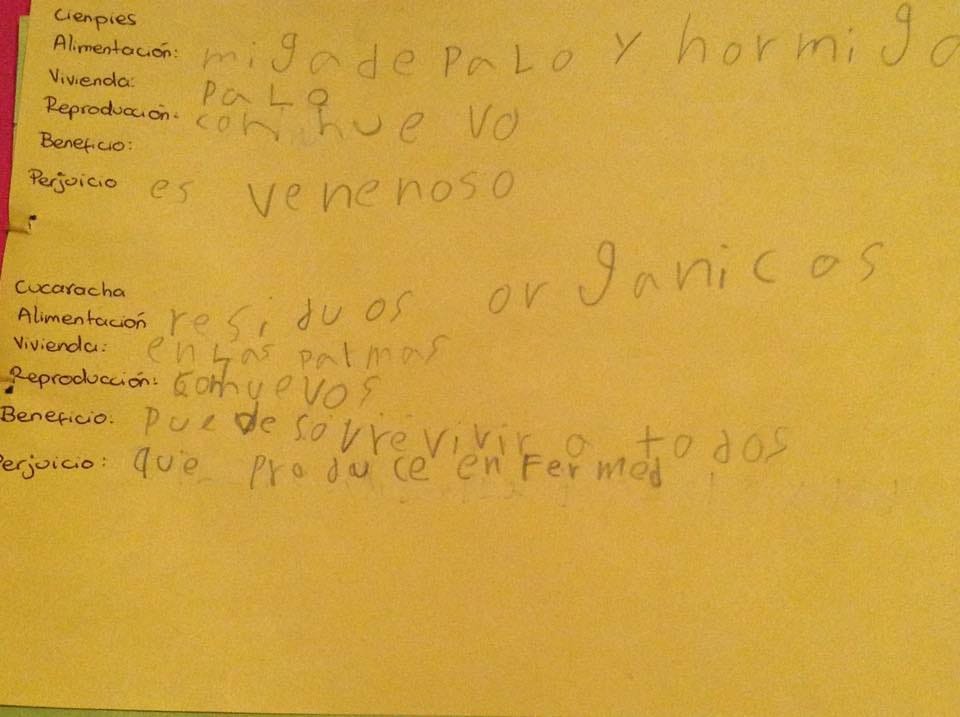 Cienpies
Alimentación: miga de paLo y hormiga
Vivienda: paLo
Reproducción. con huevo
Beneficio:
Perjuicio es venenoso
Cucaracha
Alimentación residuos organicos
Vivienda: en Las palmas
Reproducción: con huevos
Beneficio. puede sovrevivir a todos
Perjuicio: que produce en Fermed